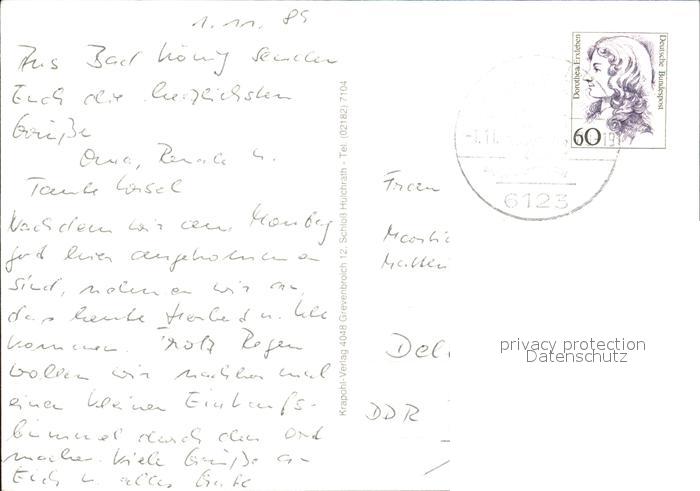 1.11.89
Aus Bad König senden
Euch die herzlichsten
Grüße
Oma, Renate u.
Tante
Nachdem wir am Montag
gut hier angekommen
sind, nehmen wir an,
das heute Herbert u. Ute
kommen. Trotz Regen
wollen wir nachher mal
einen kleinen Einkaufs-
bummel durch den Ort
machen. Viele Grüße an
Euch u. alles Gute
Krapohl-Verlag 4048 Grevenbroich 12, Schloß Hülchrath - Tel. (02182) 7104
Dorothea Erxleben
Deutsche Bundespost
60
6123
Frau
DDR
privacy protection
Datenschutz